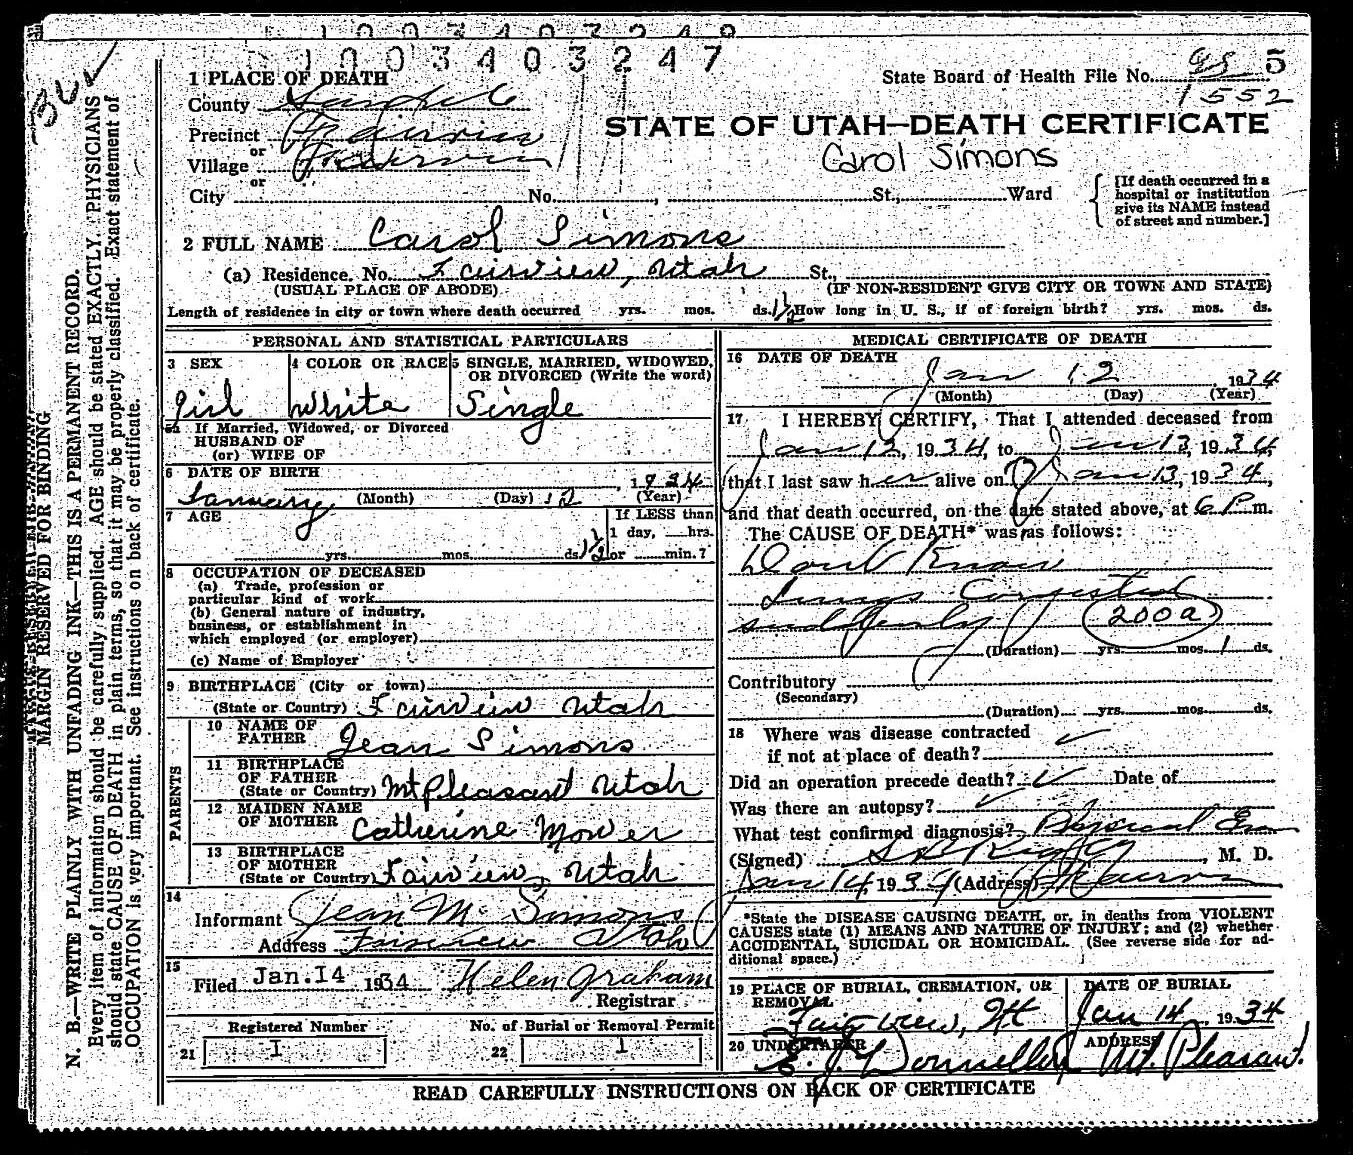 1003403247
1 PLACE OF DEATH
State Board of Health File No. 98 5
1552
County Sanpete
STATE OF UTAH—DEATH CERTIFICATE
Precinct Fairview
or
Village Fairview
Carol Simons
or
City No. , St., Ward
[If death occurred in a hospital or institution give its NAME instead of street and number.]
2 FULL NAME Carol Simons
(a) Residence. No. Fairview, Utah St.,
(USUAL PLACE OF ABODE) (IF NON-RESIDENT GIVE CITY OR TOWN AND STATE)
Length of residence in city or town where death occurred yrs. mos. ds. 1½ How long in U. S., if of foreign birth? yrs. mos. ds.
PERSONAL AND STATISTICAL PARTICULARS
3 SEX 4 COLOR OR RACE 5 SINGLE, MARRIED, WIDOWED,
OR DIVORCED (Write the word)
Girl White Single
5a If Married, Widowed, or Divorced
HUSBAND OF
(or) WIFE OF
6 DATE OF BIRTH
January (Month) (Day) 12 1934 (Year)
7 AGE If LESS than
1 day, hrs.
yrs. mos. ds. 1½ or min.?
8 OCCUPATION OF DECEASED
(a) Trade, profession or
particular kind of work
(b) General nature of industry,
business, or establishment in
which employed (or employer)
(c) Name of Employer
9 BIRTHPLACE (City or town)
(State or Country) Fairview Utah
PARENTS
10 NAME OF
FATHER Jean Simons
11 BIRTHPLACE
OF FATHER
(State or Country) Mt Pleasant Utah
12 MAIDEN NAME
OF MOTHER Catherine Mower
13 BIRTHPLACE
OF MOTHER
(State or Country) Fairview, Utah
14
Informant Jean M. Simons
Address Fairview Utah
15
Filed Jan. 14 1934 Helen Graham
Registrar
Registered Number No. of Burial or Removal Permit
21 1 22 1
MEDICAL CERTIFICATE OF DEATH
16 DATE OF DEATH
Jan 12 1934
(Month) (Day) (Year)
17 I HEREBY CERTIFY, That I attended deceased from
Jan 12, 1934, to Jan 13, 1934,
that I last saw her alive on Jan 13, 1934,
and that death occurred, on the date stated above, at 6 P m.
The CAUSE OF DEATH* was as follows:
Dont Know
Lungs Congested
suddenly 200a
(Duration) yrs. mos. 1 ds.
Contributory
(Secondary)
(Duration) yrs. mos. ds.
18 Where was disease contracted
if not at place of death?
Did an operation precede death? Date of
Was there an autopsy?
What test confirmed diagnosis? Physical Exa
(Signed) , M. D.
Jan 14, 1934 (Address) Fairview
*State the DISEASE CAUSING DEATH, or, in deaths from VIOLENT
CAUSES state (1) MEANS AND NATURE OF INJURY; and (2) whether
ACCIDENTAL, SUICIDAL OR HOMICIDAL. (See reverse side for ad-
ditional space.)
19 PLACE OF BURIAL, CREMATION, OR
REMOVAL
Fairview, Ut
DATE OF BURIAL
Jan 14, 1934
20 UNDERTAKER
E. J. Donnelley
ADDRESS
Mt. Pleasant
READ CAREFULLY INSTRUCTIONS ON BACK OF CERTIFICATE
MARGIN RESERVED FOR BINDING
N. B.—WRITE PLAINLY WITH UNFADING INK—THIS IS A PERMANENT RECORD.
Every item of information should be carefully supplied. AGE should be stated EXACTLY. PHYSICIANS
should state CAUSE OF DEATH in plain terms, so that it may be properly classified. Exact statement of
OCCUPATION is very important. See instructions on back of certificate.